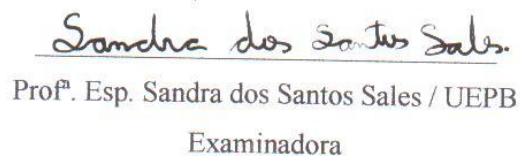 Sandra dos Santos Sales.
Profª. Esp. Sandra dos Santos Sales / UEPB
Examinadora